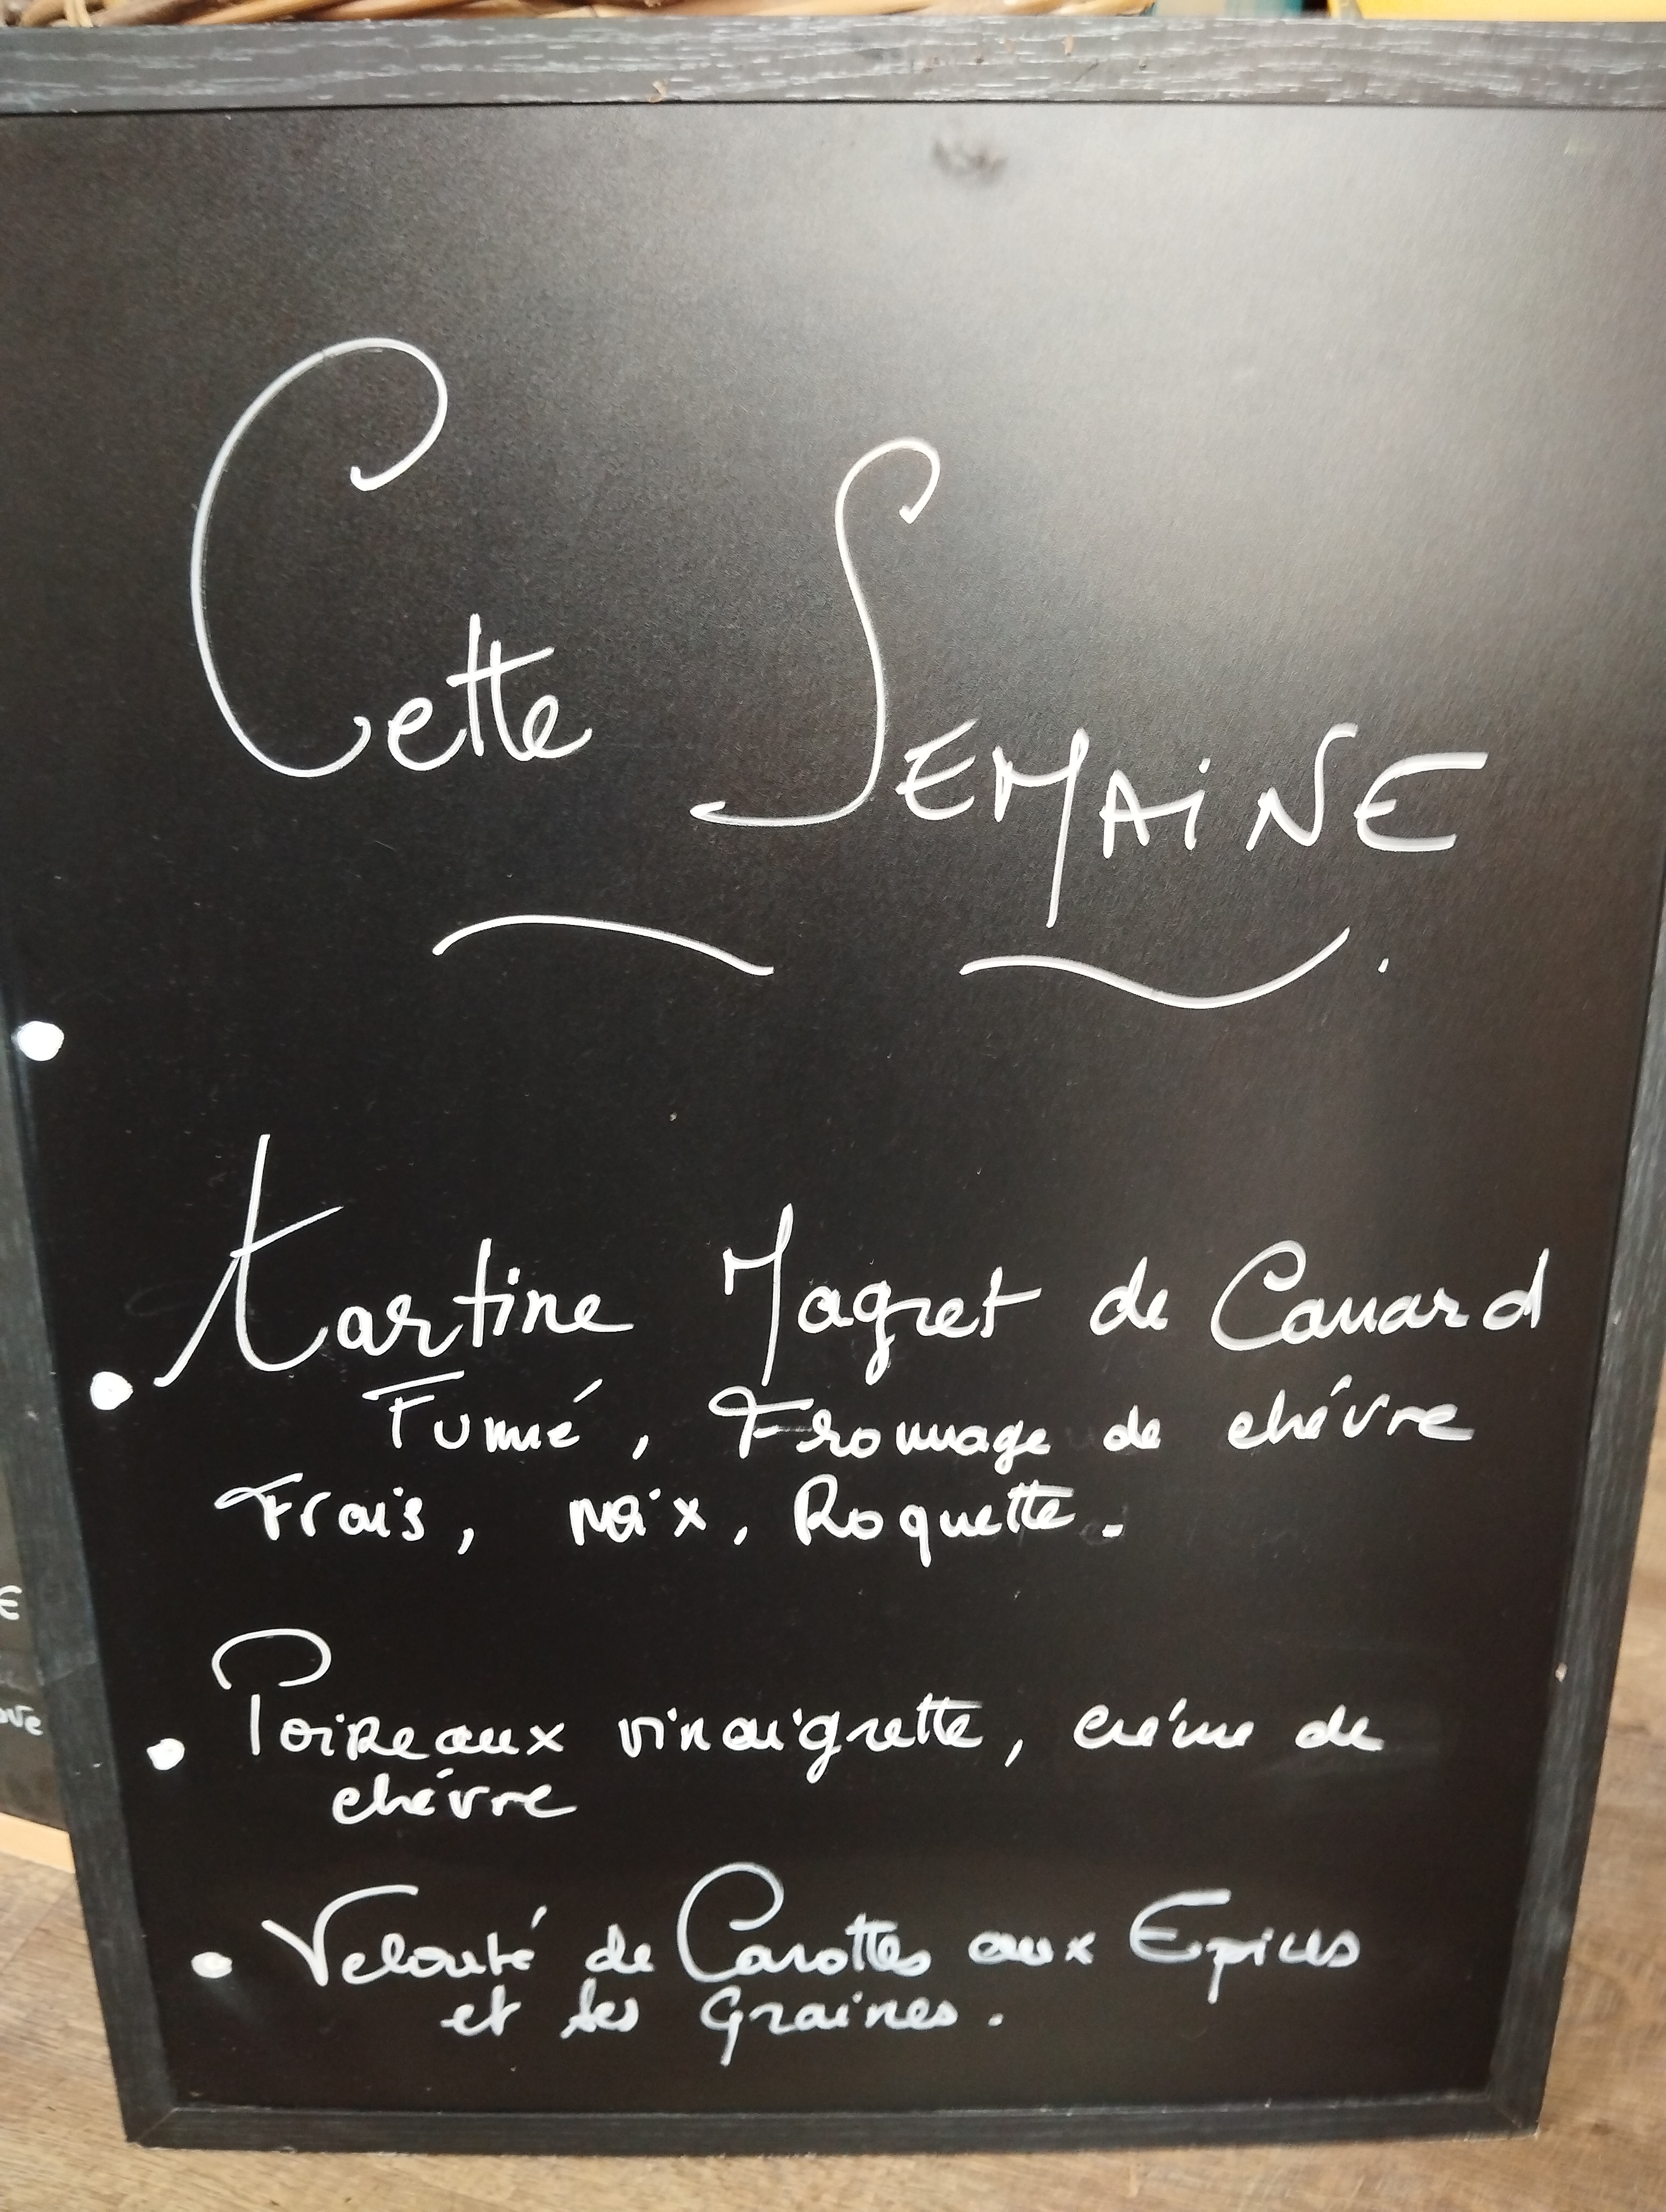 Cette SEMAINE
tartine Magret de Canard
Fumé, Fromage de chévre
Frais, noix, Roquette.
Poireaux vinaigrette, créme de
chévre
Velouté de Carottes aux Epices
et ses Graines.